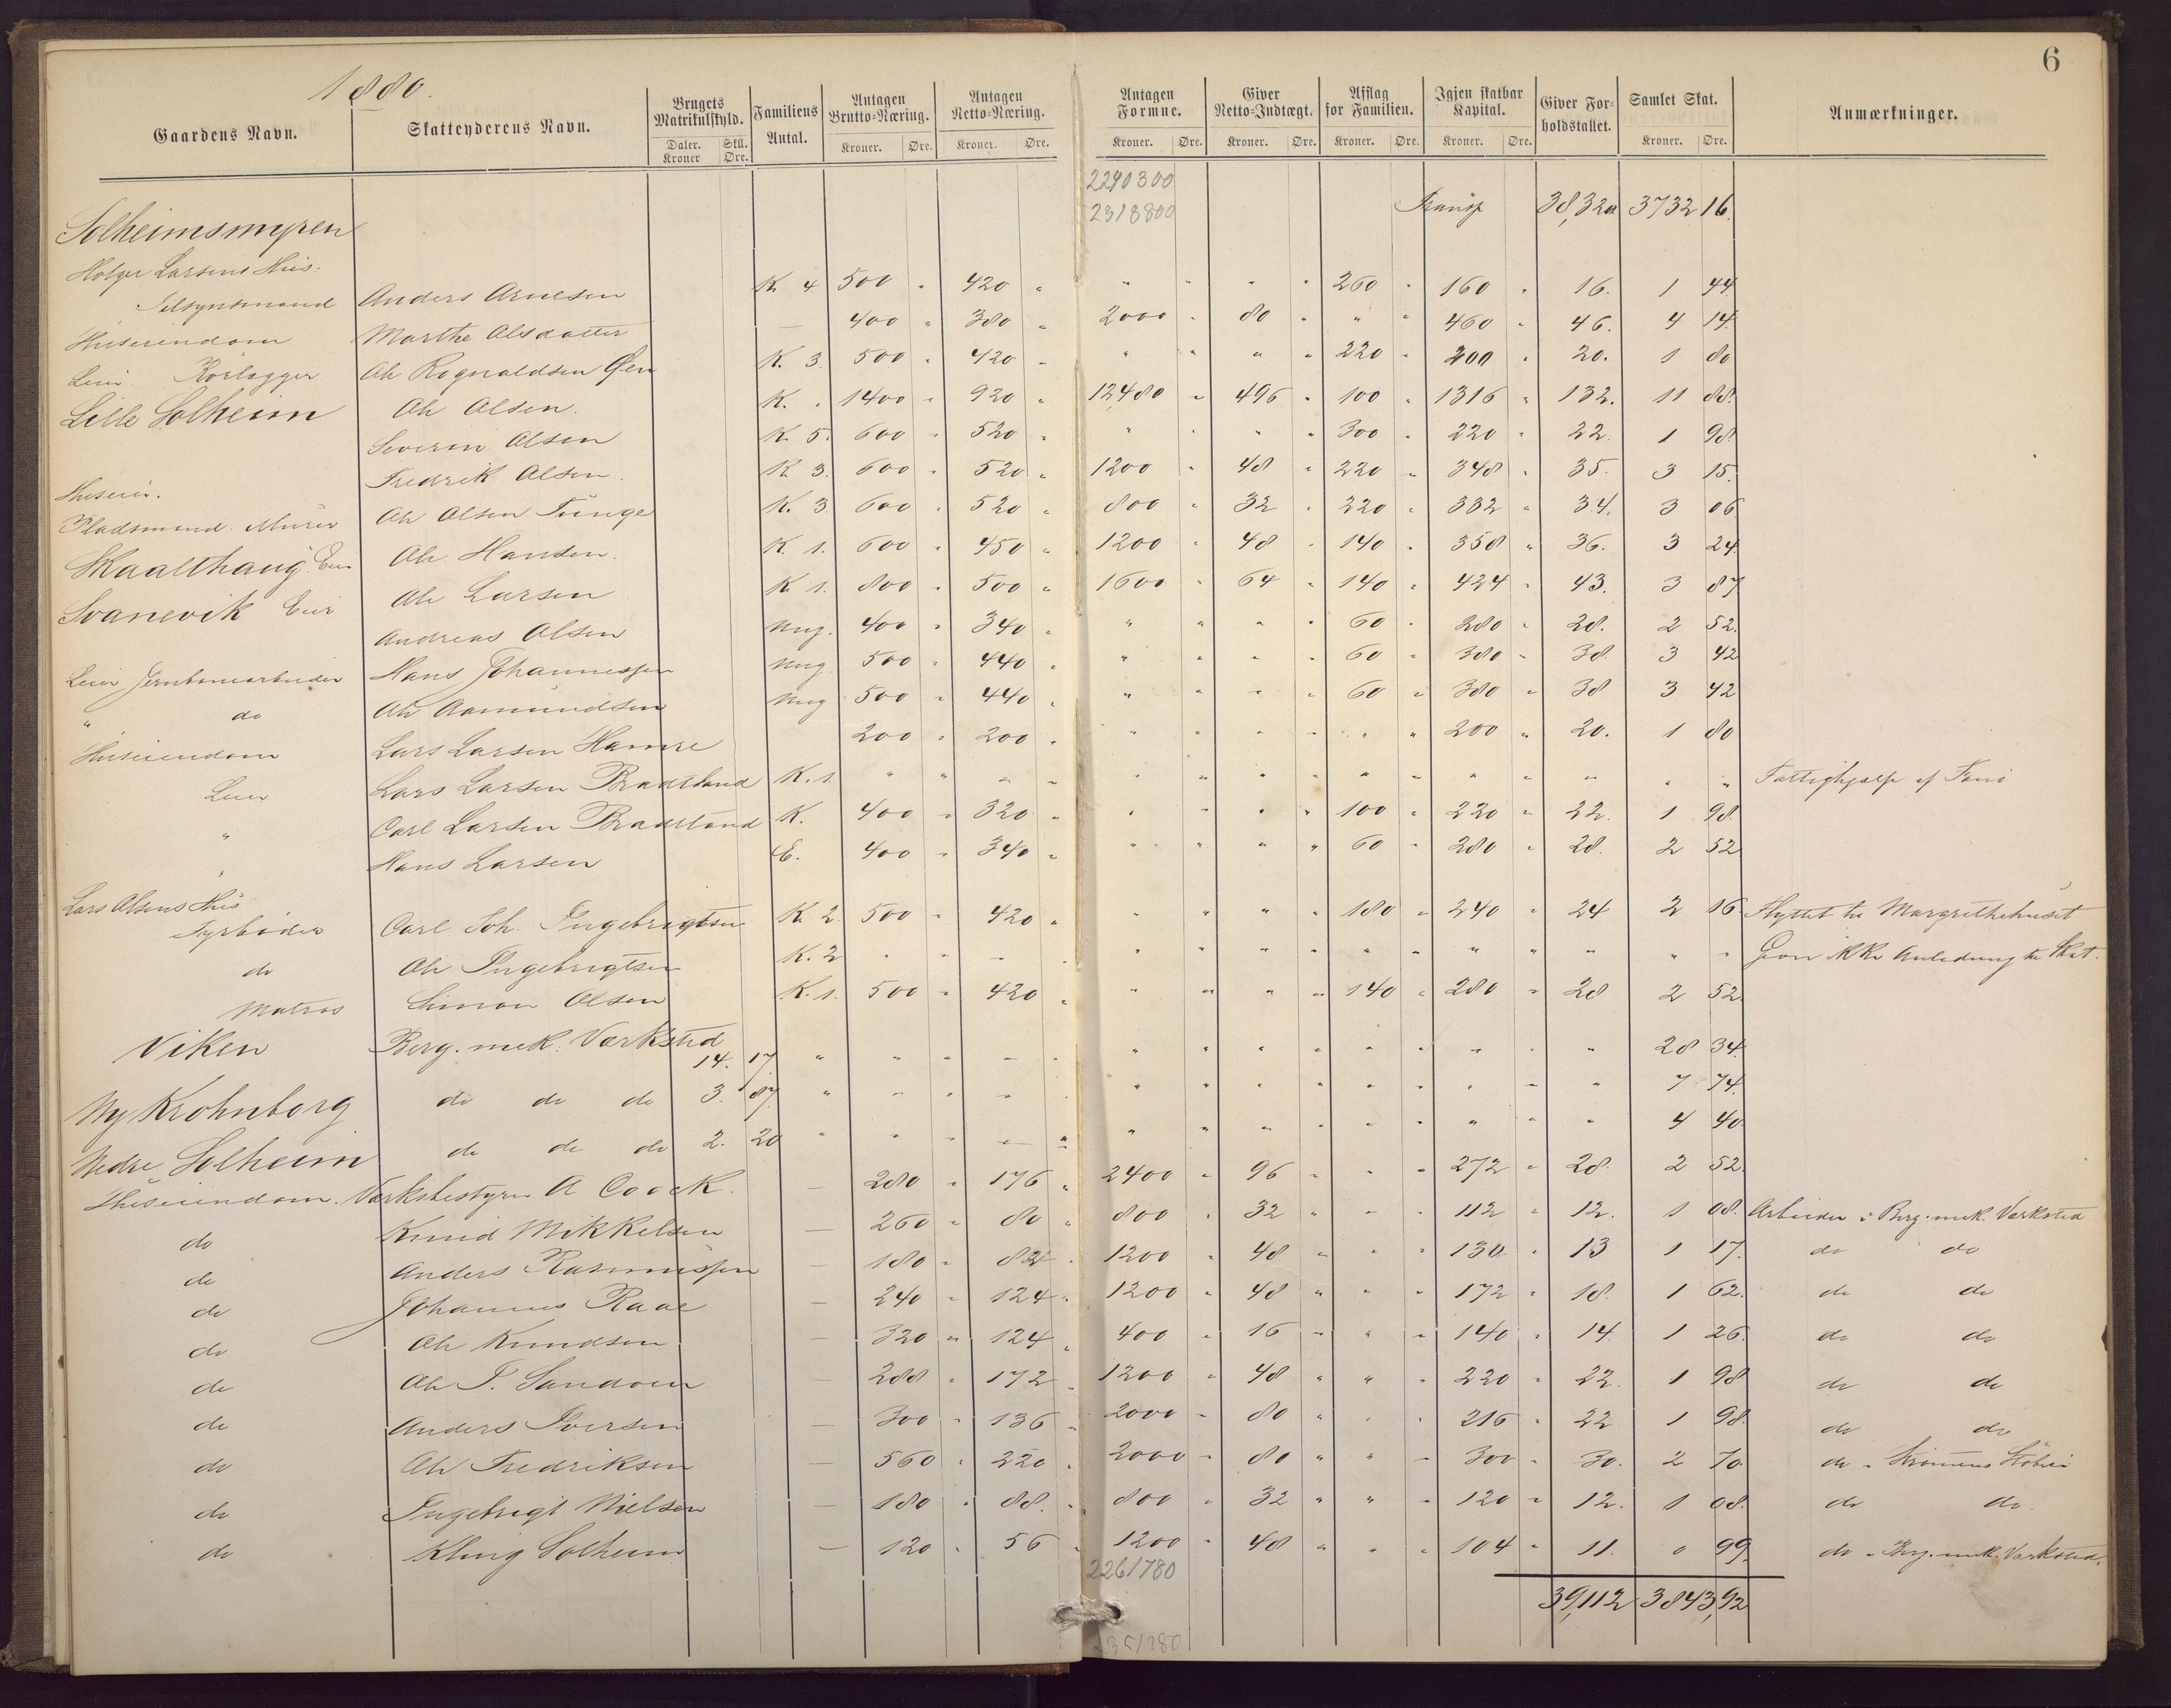 6
1880.
Gaardens Navn. Skatteyderens Navn. Brugets Matrikulskyld. Daler. Kroner Skll. Øre. Familiens Antal. Antagen Brutto=Næring. Kroner. Øre. Antagen Netto=Næring. Kroner. Øre. Antagen Formue. Kroner. Øre. Giver Netto=Indtægt. Kroner. Øre. Afslag for Familien. Kroner. Øre. Igjen skatbar Kapital. Kroner. Øre. Giver For=holdstallet. Samlet Skat. Kroner. Øre. Anmærkninger.
2240300
Solheimsmyren 2318800 Transp 38,320 3732 16.
Holger Larsens Hus.
Tilsynsmand Anders Arnesen K. 4 500 " 420 " " " " " 260 " 160 " 16. 1 44
Huseiendom Marthe Olsdatter — 400 " 380 " 2000 " 80 " " " 460 " 46. 4 14.
Leier Ole Rognaldsen Øen K. 3. 500 " 420 " " " " " 220 " 200 " 20. 1 80
Lille Solheim Ole Olsen. K. " 1400 " 920 " 12480 " 496 " 100 " 1316 " 132. 11 88.
Severin Olsen K. 5. 600 " 520 " " " " " 300 " 220 " 22. 1 98.
Fredrik Olsen. K. 3. 600 " 520 " 1200 " 48 " 220 " 348 " 35. 3 15.
Huseier. Ole Olsen Tunge K. 3 600 " 520 " 800 " 32 " 220 " 332 " 34. 3 06
Pladsmand. Murer Ole Hansen. K. 1. 600 " 450 " 1200 " 48 " 140 " 358 " 36. 3 24
Skaalthaug Eier Ole Larsen K. 1. 800 " 500 " 1600 " 64 " 140 " 424 " 43. 3 87
Svanevik Eier Andreas Olsen Ung. 400 " 340 " " " " " 60 " 280 " 28. 2 52.
Leier Jernbanearbeider Hans Johannessen Ung 500 " 440 " " " " " 60 " 380 " 38. 3 42
" do Ole Aamundsen Ung 500 " 440 " " " " " 60 " 380 " 38 3 42
Huseiendom Lars Larsen Hamre 200 " 200 " " " " " " " 200 " 20. 1 80
Leier Lars Larsen Bradtland K. 1 " " " " " " " " " " " " " " " Fattighjælp af Fane
" Carl Larsen Bradtland K. 400 " 320 " " " " " 100 " 220 " 22. 1 98.
" Hans Larsen E. 400 " 340 " " " " " 60 " 280 " 28. 2 52
Lars Olsens Hus
Fyrbøder Carl Joh. Ingebrigtsen K. 2. 500 " 420 " " " " " 180 " 240 " 24 2 16 Flyttet til Margrethehuset
do Ole Ingebrigtsen K. 2 " " " " " " " " " " " " " " " Giver ikke Anledning til Skat.
Matros Simon Olsen K. 1. 500 " 420 " " " " " 140 " 280 " 28 2 52.
Viken Berg. mek. Værksted 14. 17. " " " " " " " " " " " " " " 28 34.
Ny Krohnborg do do do 3. 87. " " " " " " " " " " " " " " 7 74.
Nedre Solheim do do do 2. 20 " " " " " " " " " " " " " " 4 40.
Huseiendom. Værksbestyrer A Coock. — 280 " 176 " 2400 " 96 " " " 272 " 28. 2 52.
do Knud Mikkelsen — 260 " 80 " 800 " 32 " " " 112 " 12. 1 08. Arbeider i Berg. mek. Værksted
do Anders Rasmussen — 180 " 82 " 1200 " 48 " " " 130 " 13 1 17. do do
do Johannes Raae — 240 " 124 " 1200 " 48 " " " 172 " 18. 1 62. do do
do Ole Knudsen — 320 " 124 " 400 " 16 " " " 140 " 14. 1 26. do do
do Ole T. Sandven — 288 " 172 " 1200 " 48 " " " 220 " 22. 1 98 do do
do Anders Iversen — 300 " 136 " 2000 " 80 " " " 216 " 22 1 98. do do
do Ole Fredriksen — 560 " 220 " 2000 " 80 " " " 300 " 30. 2 70. do "
do Ingebrigt Nielsen — 180 " 88. " 800 " 32 " " " 120 " 12. 1 08. do do.
do Solheim — 120 " 56 " 1200 " 48 " " " 104 " 11. 0 99. do " Berg. mek. Værksted.
2261780
39,112 3843,92
2351280